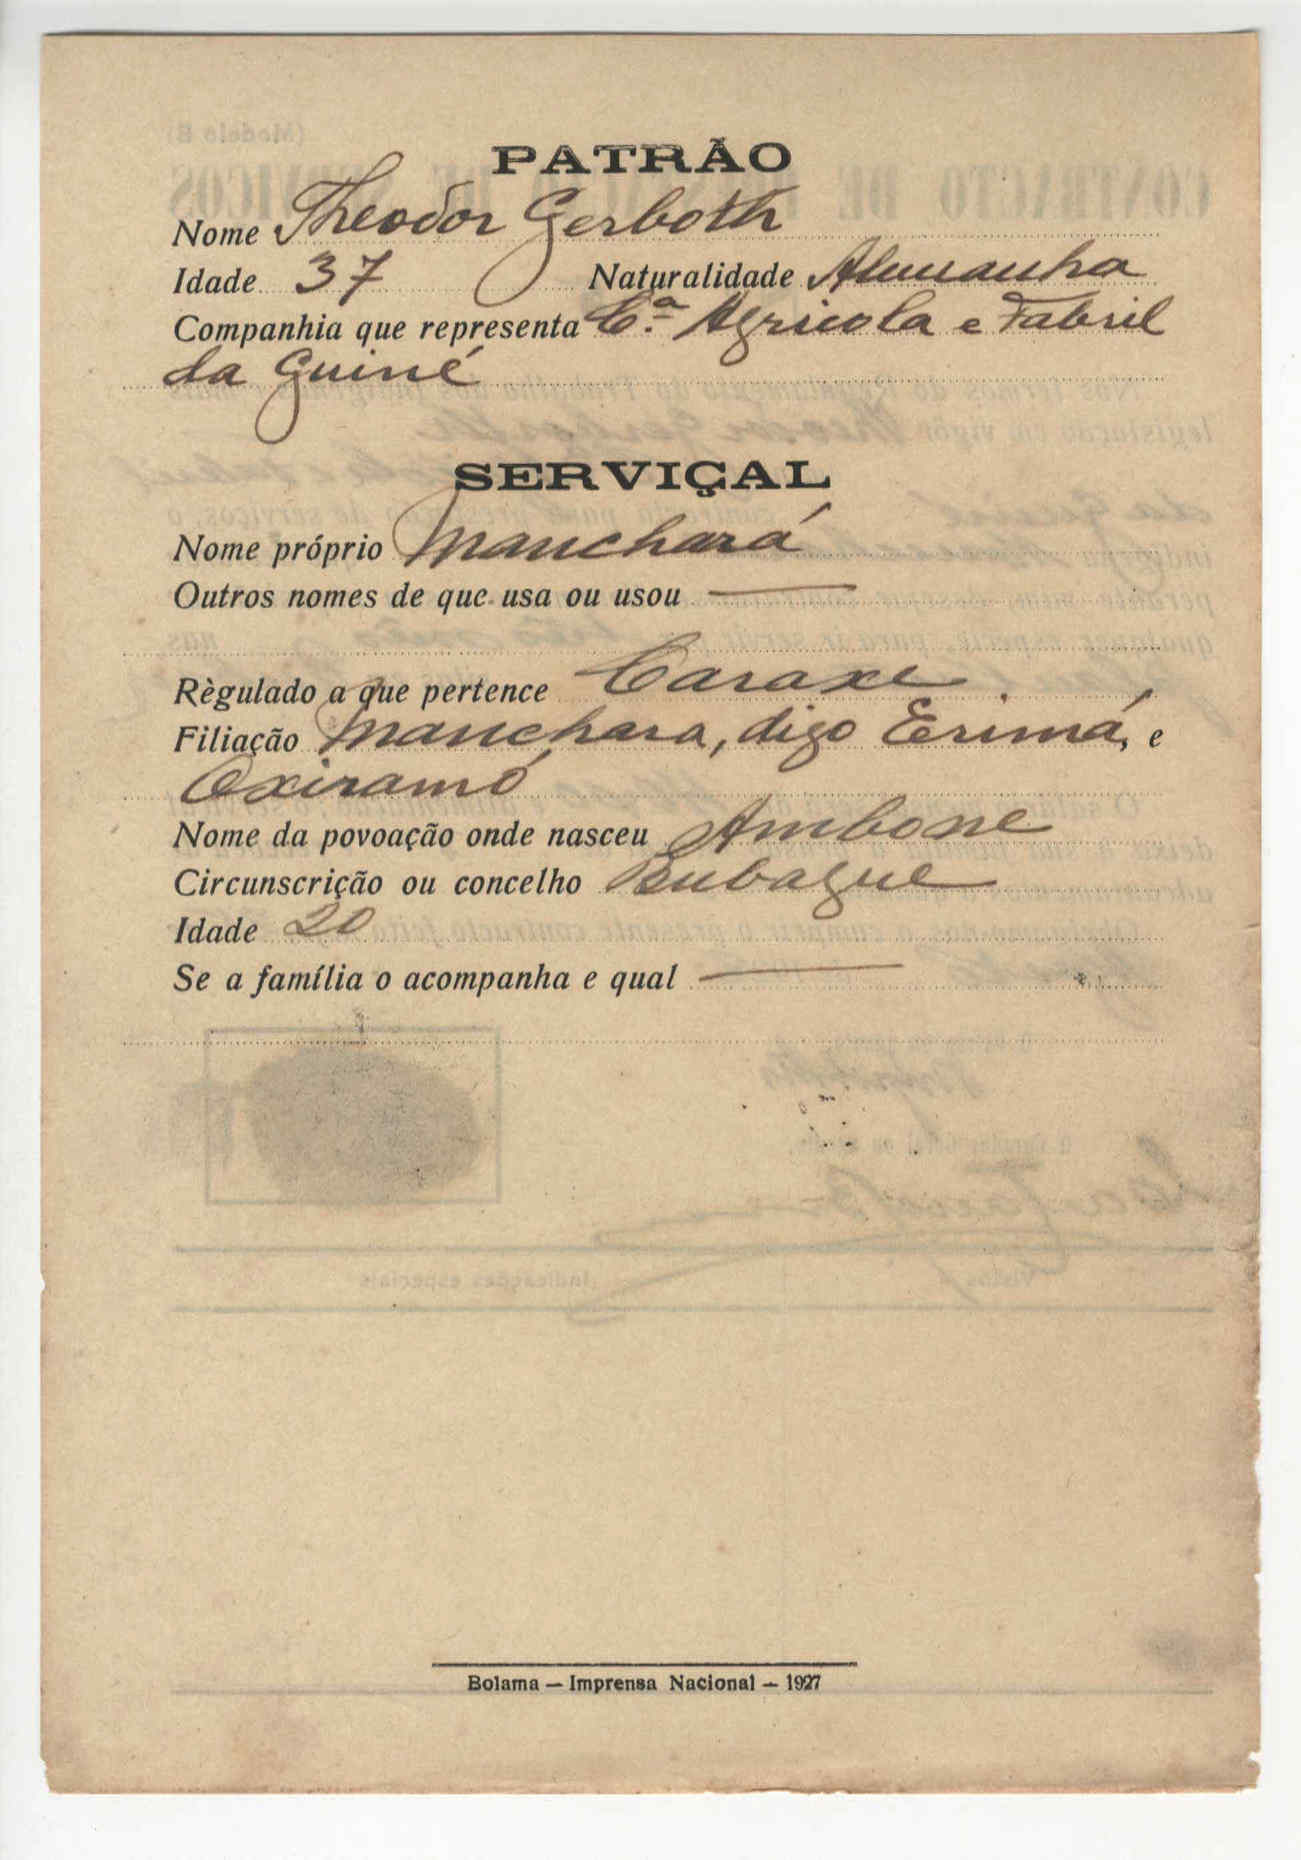 PATRÃO
Nome Theodor Gerboth
Idade 37 Naturalidade Alemanha
Companhia que representa C.ª Agricola e Fabril
da Guiné
SERVIÇAL
Nome próprio Manchará
Outros nomes de que usa ou usou —
Règulado a que pertence Caraxe
Filiação Manchara, digo Erimá, e
Oxiramó
Nome da povoação onde nasceu Ambone
Circunscrição ou concelho Bubaque
Idade 20
Se a família o acompanha e qual —
Bolama — Imprensa Nacional — 1927